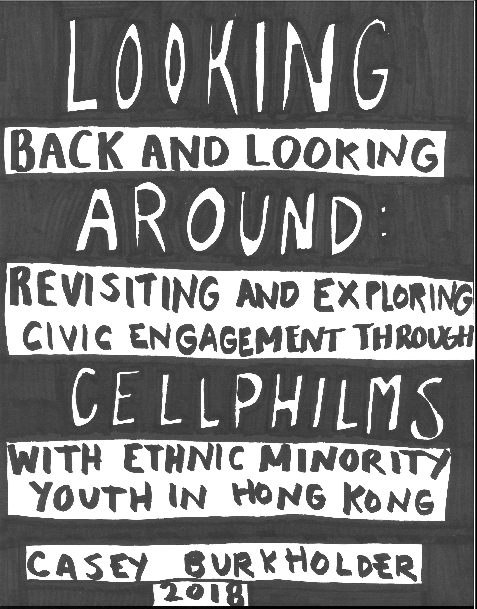 LOOKING
BACK AND LOOKING
AROUND:
REVISITING AND EXPLORING
CIVIC ENGAGEMENT THROUGH
CELLPHILMS
WITH ETHNIC MINORITY
YOUTH IN HONG KONG
CASEY BURKHOLDER
2018